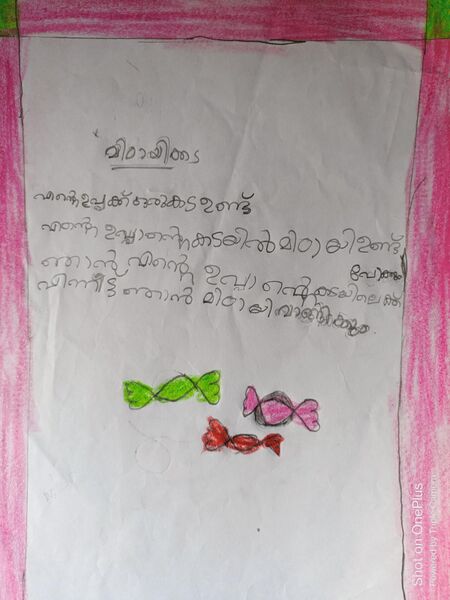 മിഠായികട
എൻ്റെ ഉപ്പക്ക് ഒരു കട ഉണ്ട്
എൻ്റെ ഉപ്പാൻ്റെ കടയിൽ മിഠായി ഉണ്ട്
ഞാൻ എൻ്റെ ഉപ്പാൻ്റെ കടയിലെക്ക് പോകും
പിന്നീട്ട് ഞാൻ മിഠായി വാങ്ങിക്കും.
Shot on OnePlus
Powered by Triple Camera